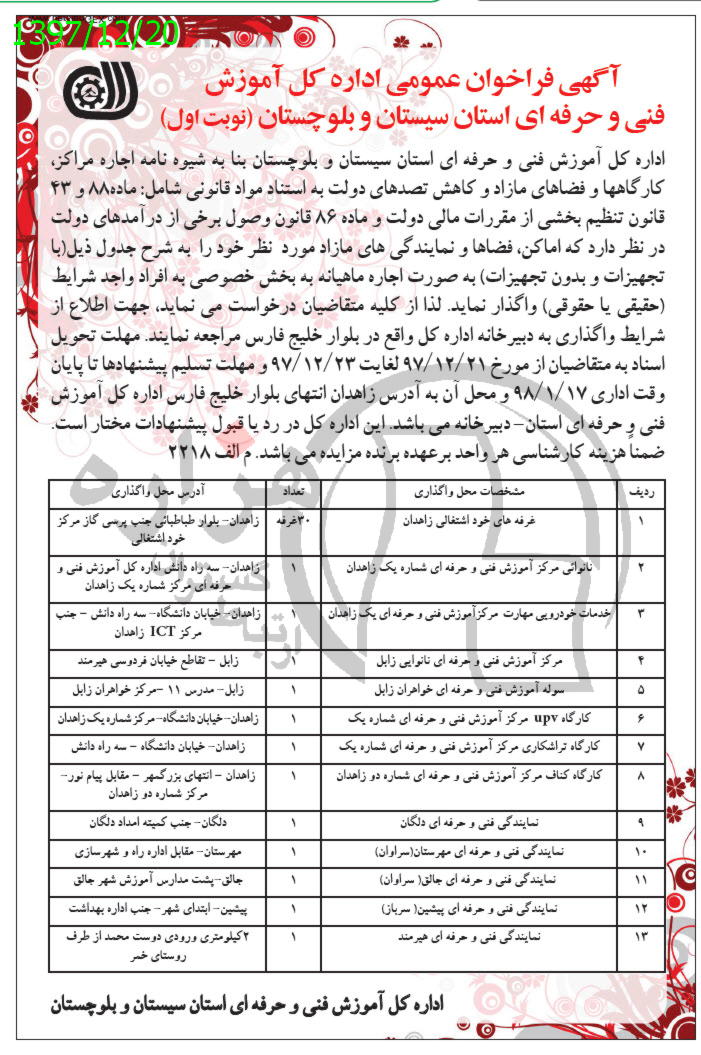 1397/12/20
آگهی فراخوان عمومی اداره کل آموزش
فنی و حرفه ای استان سیستان و بلوچستان (نوبت اول)
اداره کل آموزش فنی و حرفه ای استان سیستان و بلوچستان بنا به شیوه نامه اجاره مراکز،
کارگاهها و فضاهای مازاد و کاهش تصدهای دولت به استناد مواد قانونی شامل: ماده۸۸ و ۴۳
قانون تنظیم بخشی از مقررات مالی دولت و ماده ۸۶ قانون وصول برخی از درآمدهای دولت
در نظر دارد که اماکن، فضاها و نمایندگی های مازاد مورد نظر خود را به شرح جدول ذیل(با
تجهیزات و بدون تجهیزات) به صورت اجاره ماهیانه به بخش خصوصی به افراد واجد شرایط
(حقیقی یا حقوقی) واگذار نماید. لذا از کلیه متقاضیان درخواست می نماید، جهت اطلاع از
شرایط واگذاری به دبیرخانه اداره کل واقع در بلوار خلیج فارس مراجعه نمایند. مهلت تحویل
اسناد به متقاضیان از مورخ ۹۷/۱۲/۲۱ لغایت ۹۷/۱۲/۲۳ و مهلت تسلیم پیشنهادها تا پایان
وقت اداری ۹۸/۱/۱۷ و محل آن به آدرس زاهدان انتهای بلوار خلیج فارس اداره کل آموزش
فنی و حرفه ای استان– دبیرخانه می باشد. این اداره کل در رد یا قبول پیشنهادات مختار است.
ضمناً هزینه کارشناسی هر واحد برعهده برنده مزایده می باشد. م الف ۲۲۱۸
ردیف مشخصات محل واگذاری تعداد آدرس محل واگذاری
۱ غرفه های خود اشتغالی زاهدان ۳۰غرفه زاهدان– بلوار طباطبائی جنب پرسی گاز مرکز
خود اشتغالی
۲ نانوائی مرکز آموزش فنی و حرفه ای شماره یک زاهدان ۱ زاهدان– سه راه دانش اداره کل آموزش فنی و
حرفه ای مرکز شماره یک زاهدان
۳ خدمات خودرویی مهارت مرکزآموزش فنی و حرفه ای یک زاهدان ۱ زاهدان– خیابان دانشگاه– سه راه دانش – جنب
مرکز ICT زاهدان
۴ مرکز آموزش فنی و حرفه ای نانوایی زابل ۱ زابل – تقاطع خیابان فردوسی هیرمند
۵ سوله آموزش فنی و حرفه ای خواهران زابل ۱ زابل– مدرس ۱۱ –مرکز خواهران زابل
۶ کارگاه upv مرکز آموزش فنی و حرفه ای شماره یک ۱ زاهدان–خیابان دانشگاه–مرکز شماره یک زاهدان
۷ کارگاه تراشکاری مرکز آموزش فنی و حرفه ای شماره یک ۱ زاهدان– خیابان دانشگاه – سه راه دانش
۸ کارگاه کناف مرکز آموزش فنی و حرفه ای شماره دو زاهدان ۱ زاهدان – انتهای بزرگمهر – مقابل پیام نور–
مرکز شماره دو زاهدان
۹ نمایندگی فنی و حرفه ای دلگان ۱ دلگان– جنب کمیته امداد دلگان
۱۰ نمایندگی فنی و حرفه ای مهرستان(سراوان) ۱ مهرستان– مقابل اداره راه و شهرسازی
۱۱ نمایندگی فنی و حرفه ای جالق( سراوان) ۱ جالق–پشت مدارس آموزش شهر جالق
۱۲ نمایندگی فنی و حرفه ای پیشین( سرباز) ۱ پیشین– ابتدای شهر– جنب اداره بهداشت
۱۳ نمایندگی فنی و حرفه ای هیرمند ۱ ۲کیلومتری ورودی دوست محمد از طرف
روستای خمر
اداره کل آموزش فنی و حرفه ای استان سیستان و بلوچستان
هزاره